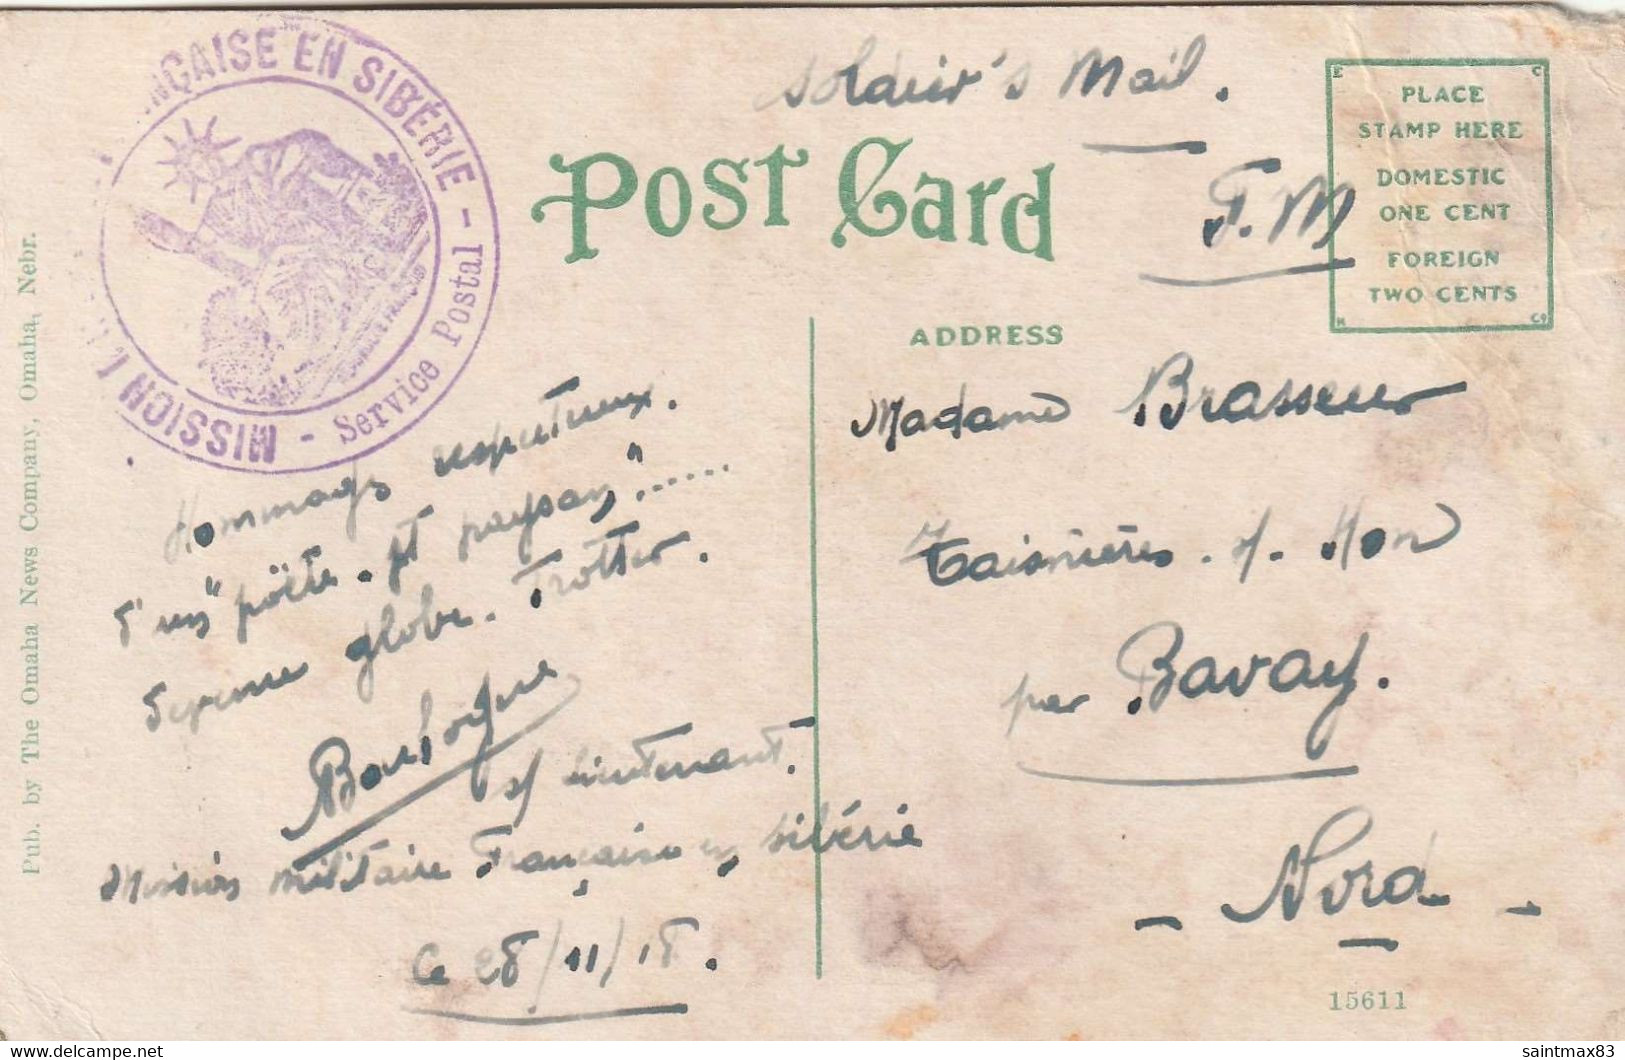 MISSION
NÇAISE EN SIBÉRIE -
- Service Postal
Soldier's Mail.
F.M
Post Card
PLACE
STAMP HERE
DOMESTIC
ONE CENT
FOREIGN
TWO CENTS
ADDRESS
Madame Brasseur
Taisnières . s/ . Hon
par Bavay.
- Nord -
Hommages respectueux.
d'un "poëte . et paysan"......
devenu globe-Trotter.
Boulogne
s/ lieutenant.
Mission militaire Française en Sibérie
Ce 28/11/18.
Pub. by The Omaha News Company, Omaha, Nebr.
15611
saintmax83